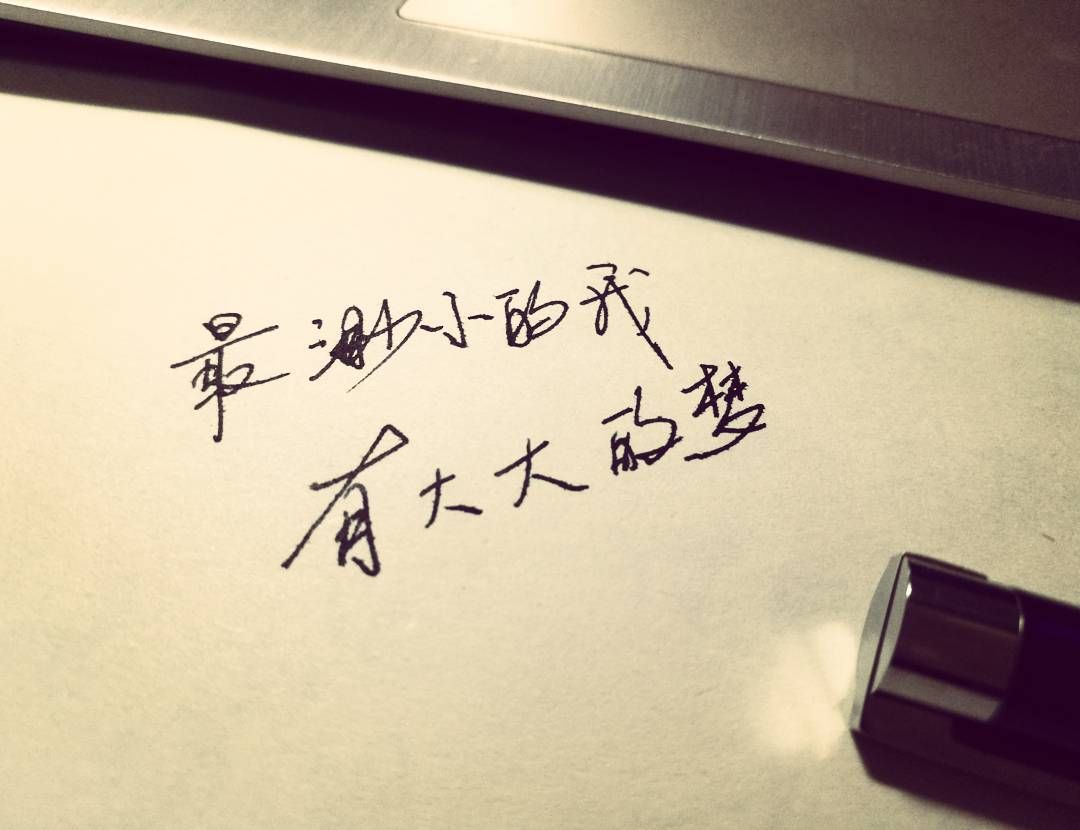 最渺小的我
有大大的梦